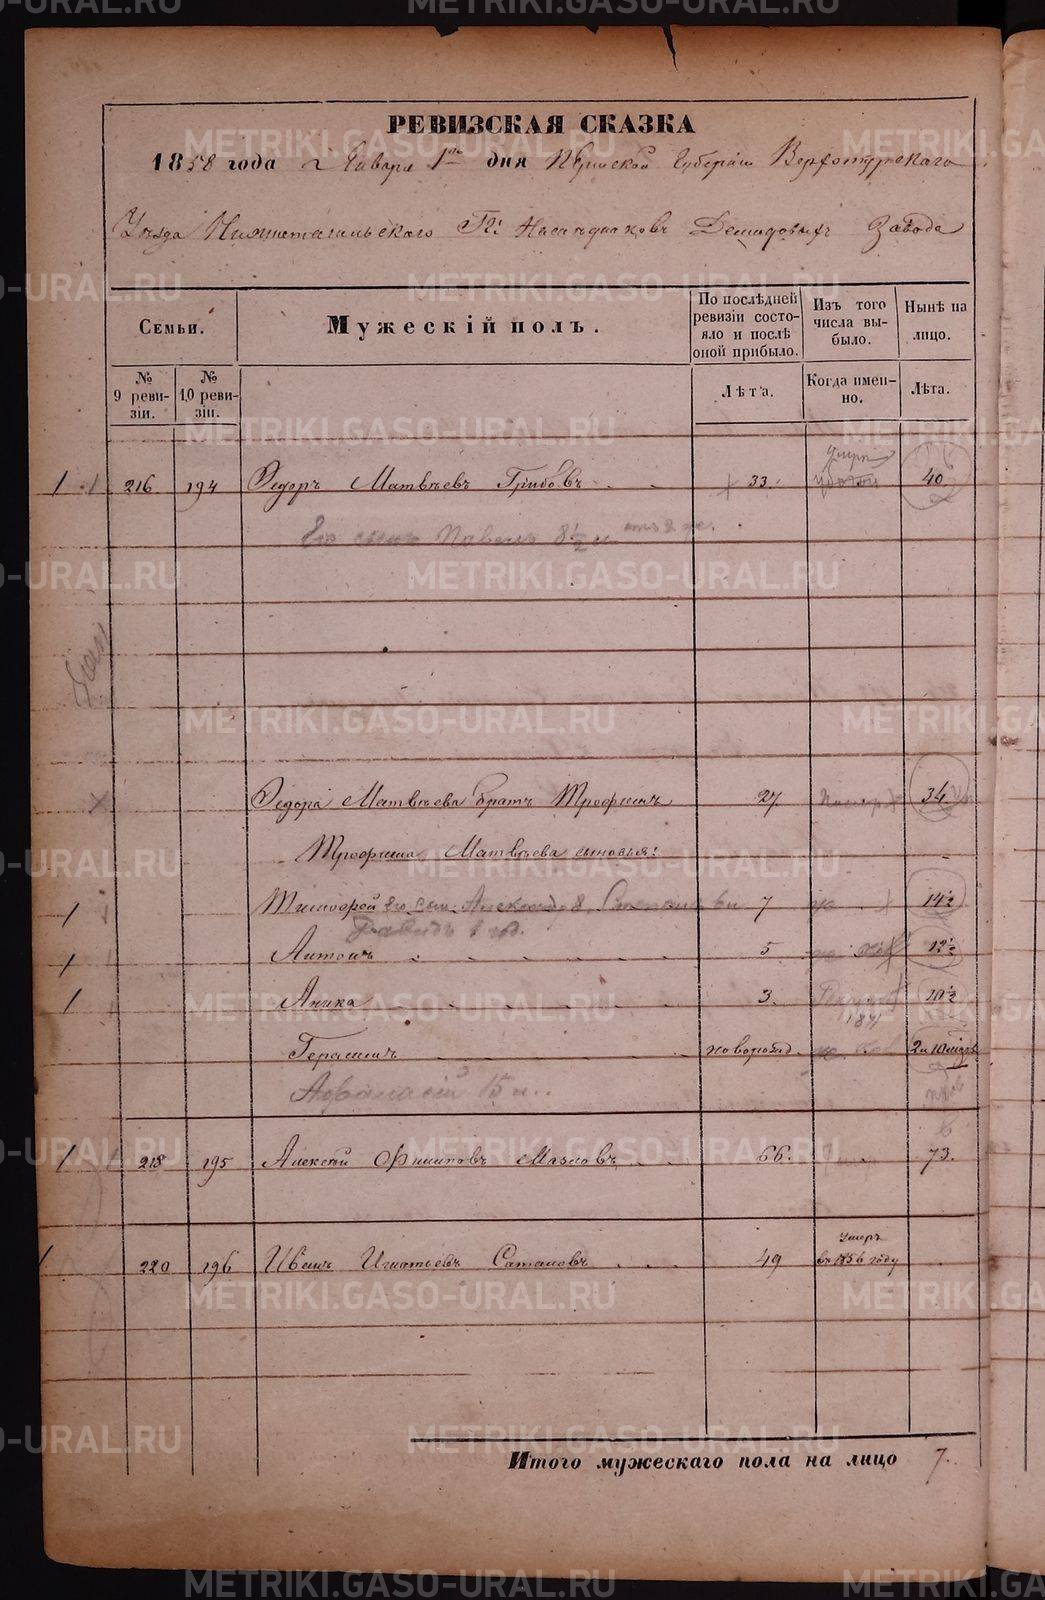 РЕВИЗСКАЯ СКАЗКА
1858 года Января 1го дня Пермской Губернии Верхотурскаго
Уѣзда Нижнетагильскаго Гг: Наслѣдниковъ Демидовыхъ Завода
Семьи.
Мужескій полъ.
По послѣдней ревизіи состояло и послѣ оной прибыло.
Изъ того числа выбыло.
Нынѣ на лицо.
№ 9 ревизіи.
№ 10 ревизіи.
Лѣта.
Когда именно.
Лѣта.
1 216 194 Ѳедоръ Матвѣевъ Грибовъ 33. умеръ 40
Его сынъ Павелъ 8½
Ѳедора Матвѣева братъ Трофимъ 27 34
Трофима Матвѣева сыновья:
1 Тимофей Его сын: Александ 8, Степанъ 7 14½
Давидъ 1 год.
1 Антонъ 5. 12½
1 Аника 3. 10½
1871
Герасимъ новорожд. 2 и 10 мѣсц
Афанасій
1 218 195 Алексѣй Филиповъ Мазловъ 66. 73.
1 220 196 Иванъ Игнатьевъ Сатановъ 49 умеръ въ 1856 году
Итого мужескаго пола на лицо 7.
METRIKI.GASO-URAL.RU